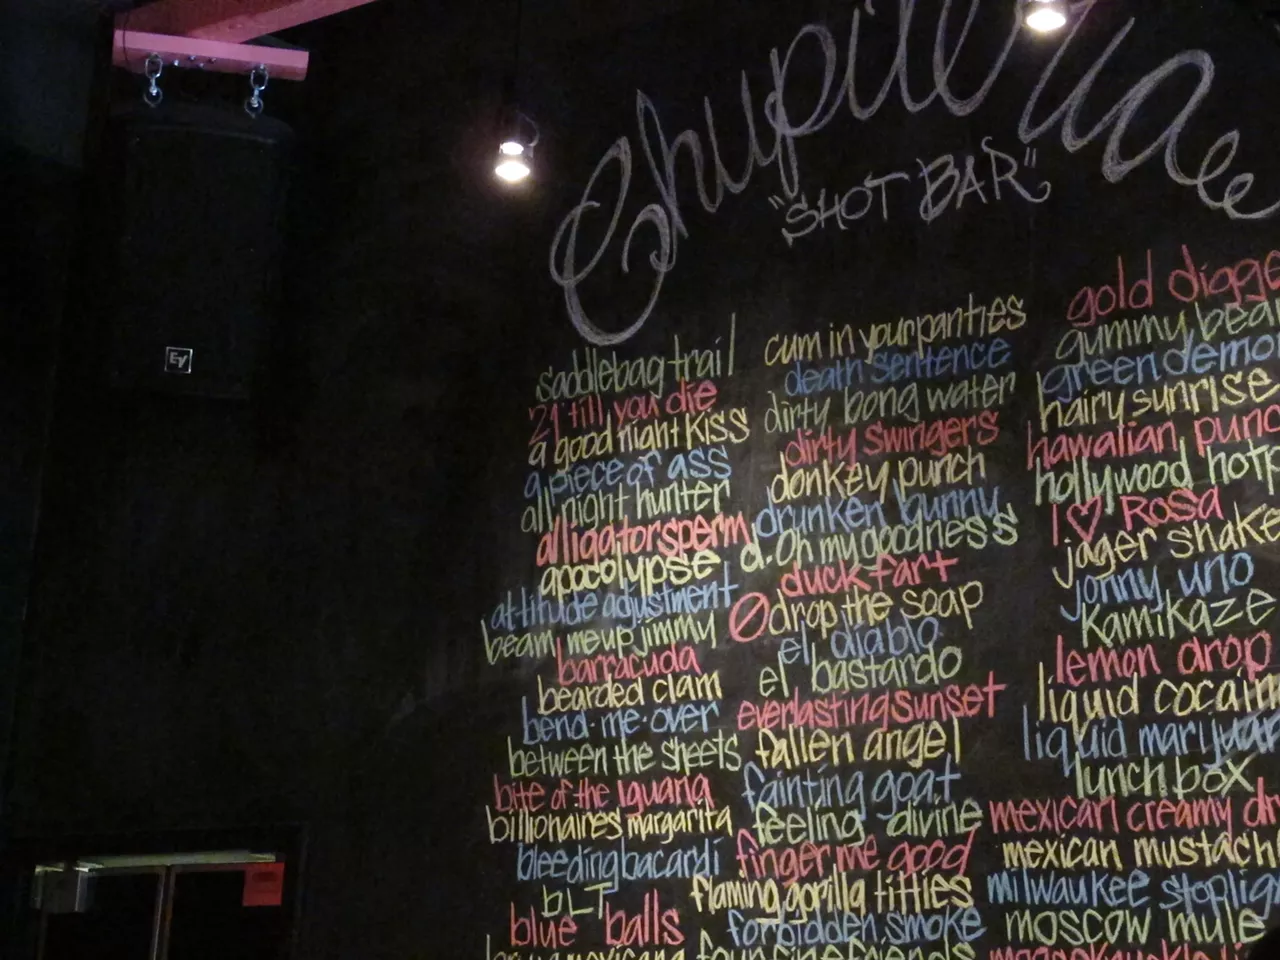 Chupiteria
"SHOT BAR"
EV
saddlebag trail
21 till you die
a good night kiss
a piece of ass
all night hunter
alligator sperm
apocolypse
attitude adjustment
beam me up jimmy
barracuda
bearded clam
bend-me-over
between the sheets
bite of the iguana
billionaires margarita
bleeding bacardi
BLT
blue balls
mexicana
cum in your panties
death sentence
dirty bong water
dirty swingers
donkey punch
drunken bunny
d. oh my goodness
duck fart
drop the soap
el diablo
el bastardo
everlasting sunset
fallen angel
fainting goat
feeling divine
finger me good
flaming gorilla titties
forbidden smoke
four fine friends
gold digge
gummy bea
green demo
hairy sunrise
hawaiian punc
hollywood hotp
I ♡ Rosa
jager shake
jonny uno
kamikaze
lemon drop
liquid cocain
liquid maryjuan
lunch box
mexican creamy dr
mexican mustach
milwaukee stoplig
moscow mule